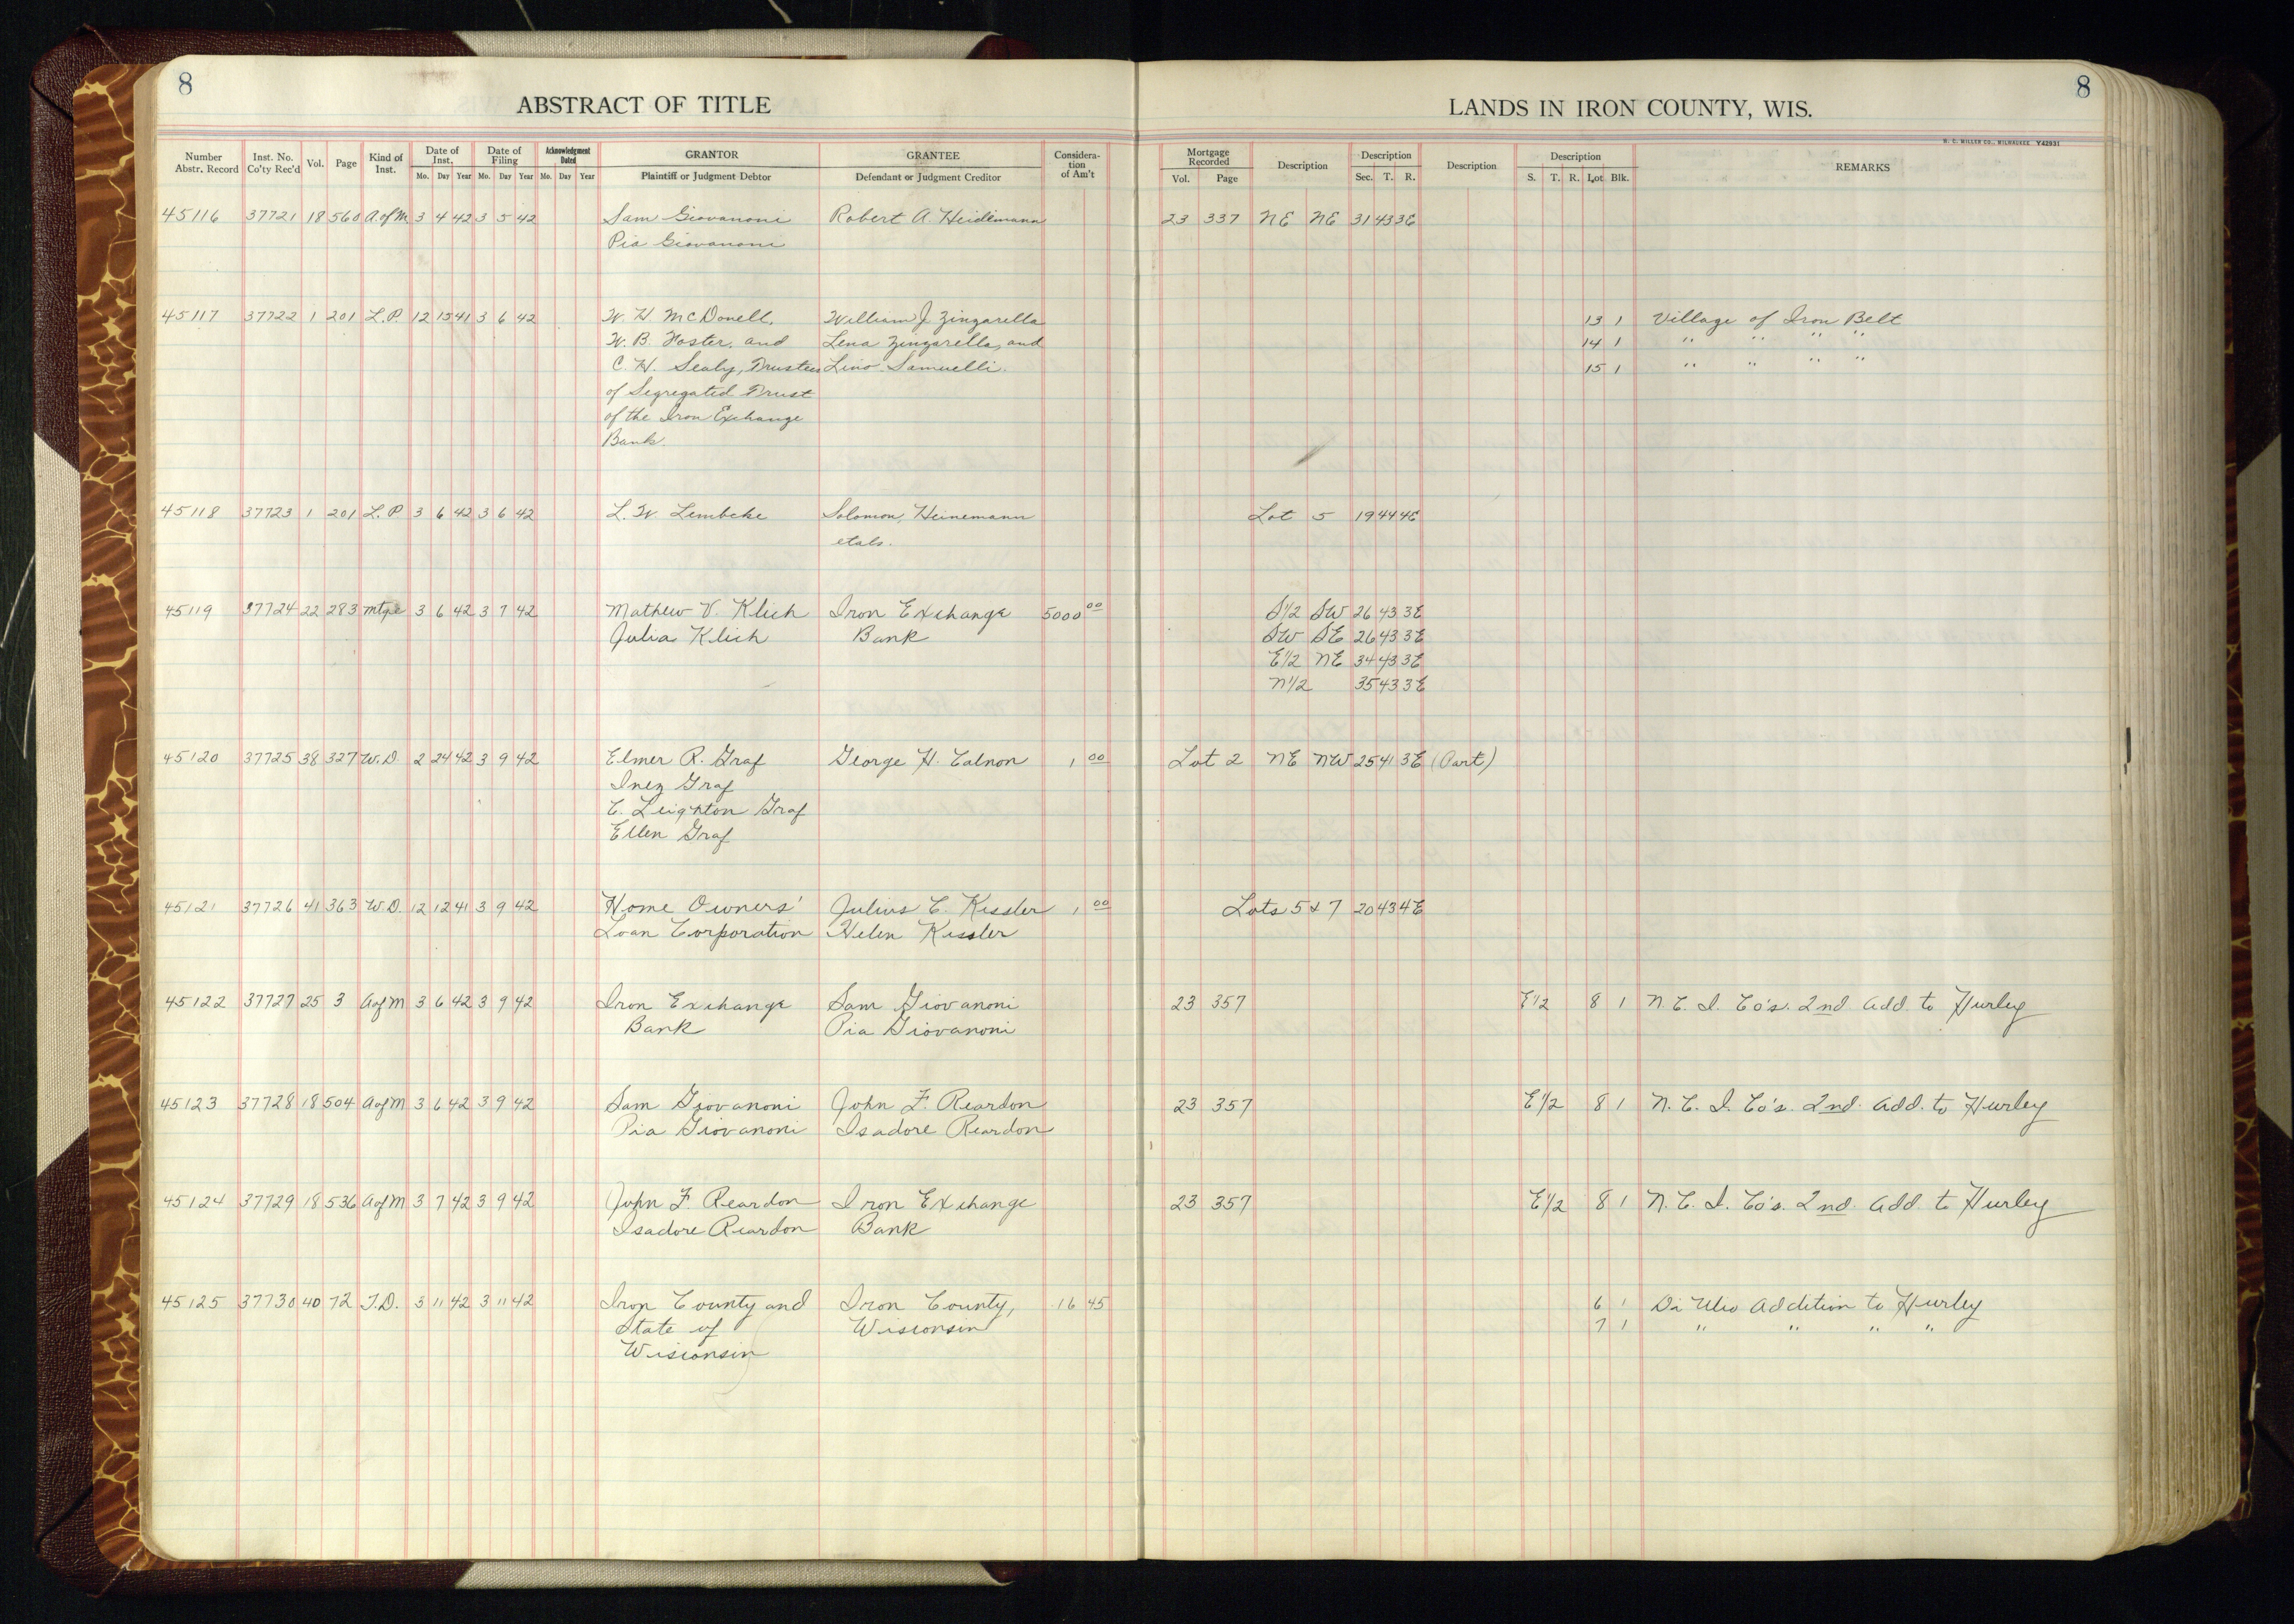 8
8
ABSTRACT OF TITLE
LANDS IN IRON COUNTY, WIS.
H. C. MILLER CO., MILWAUKEE Y42931
Number Abstr. Record Inst. No. Co'ty Rec'd Vol. Page Kind of Inst. Date of Inst. Mo. Day Year Date of Filing Mo. Day Year Acknowledgment Dated Mo. Day Year GRANTOR Plaintiff or Judgment Debtor GRANTEE Defendant or Judgment Creditor Consideration of Am't Mortgage Recorded Vol. Page Description Description Sec. T. R. Description Description S. T. R. Lot Blk. REMARKS
45116 37721 18 560 A of M 3 4 42 3 5 42 Sam Giovanoni Robert A. Heidemann 23 337 NE NE 31 43 3E
Pia Giovanoni
45117 37722 1 201 L.P. 12 15 41 3 6 42 W. H. McDonell, William J. Zingarella 13 1 Village of Iron Belt
W. B. Foster, and Lena Zingarella, and 14 1 " " " "
C. H. Sealy, Trustees Lino Samuelli. 15 1 " " " "
of Segregated Trust
of the Iron Exchange
Bank.
45118 37723 1 201 L.P 3 6 42 3 6 42 L. W. Lembcke Solomon Heinemann Lot 5 19 44 4E
etals.
45119 37724 22 283 Mtge 3 6 42 3 7 42 Mathew V. Klich Iron Exchange 5000 00 S1/2 SW 26 43 3E
Julia Klich Bank SW SE 26 43 3E
E1/2 NE 34 43 3E
N1/2 35 43 3E
45120 37725 38 327 W.D. 2 24 42 3 9 42 Elmer R. Graf George H. Calnon 1 00 Lot 2 NE NW 25 41 3E (Part)
Inez Graf
C. Leighton Graf
Ellen Graf
45121 37726 41 363 W.D. 12 12 41 3 9 42 Home Owners' Julius C. Kissler 1 00 Lots 5 & 7 20 43 4E
Loan Corporation Helen Kissler
45122 37727 25 3 A of M 3 6 42 3 9 42 Iron Exchange Sam Giovanoni 23 357 E1/2 8 1 N. C. I. Co's. 2nd Add. to Hurley
Bank Pia Giovanoni
45123 37728 18 504 A of M 3 6 42 3 9 42 Sam Giovanoni John F. Reardon 23 357 E1/2 8 1 N. C. I. Co's. 2nd. Add. to Hurley
Pia Giovanoni Isadore Reardon
45124 37729 18 536 A of M 3 7 42 3 9 42 John F Reardon Iron Exchange 23 357 E1/2 8 1 N. C. I. Co's. 2nd. Add. to Hurley
Isadore Reardon Bank
45125 37730 40 72 T.D. 3 11 42 3 11 42 Iron County and Iron County, 16 45 6 1 Di Ulio Addition to Hurley
State of Wisconsin 7 1 " " " "
Wisconsin